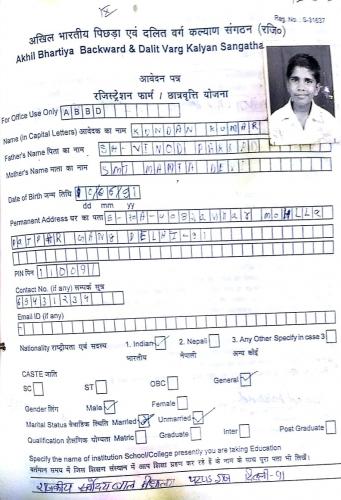 Reg. No.: S-31637
अखिल भारतीय पिछड़ा एवं दलित वर्ग कल्याण संगठन (रजि०)
Akhil Bhartiya Backward & Dalit Varg Kalyan Sangathan
आवेदन पत्र
रजिस्ट्रेशन फार्म / छात्रवृत्ति योजना
For Office Use Only A B B D
Name (in Capital Letters) आवेदक का नाम KUNDAN KUMAR
Father's Name पिता का नाम SH. VINOD
Mother's Name माता का नाम SMT MAMTA DE
Date of Birth जन्म तिथि
dd mm yy
Permanent Address घर का पता MOHLLA
GANJ DELHI-91
PIN पिन 110091
Contact No. (if any) सम्पर्क सूत्र
Email ID (if any)
Nationality राष्ट्रीयता एवं सदस्य 1. Indian 2. Nepali 3. Any Other Specify in case 3
भारतीय नेपाली अन्य कोई
CASTE जाति
SC ST OBC General
Gender लिंग Male Female
Marital Status वैवाहिक स्थिति Married Unmarried
Qualification शैक्षणिक योग्यता Matric Graduate Inter Post Graduate
Specify the name of institution School/College presently you are taking Education
वर्तमान समय में जिस शिक्षण संस्थान में आप शिक्षा ग्रहण कर रहे हैं के नाम के साथ पूरा पता भी लिखें।
राजकीय सर्वोदय बाल विद्यालय दिल्ली-91